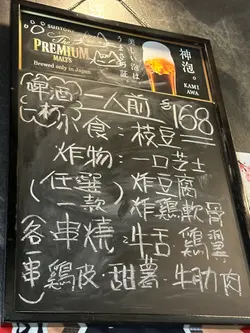 SUNTORY
The
PREMIUM
MALT'S
Brewed only in Japan
美しい泡は、
うまさの証。
神泡。
KAMI
AWA
啤酒一人前 $168
小食：枝豆
炸物：一口芝士
(任選 炸豆腐
一款) 炸鷄軟骨
各一串 串燒：牛舌 鷄翼
鷄皮·甜薯·牛肋肉